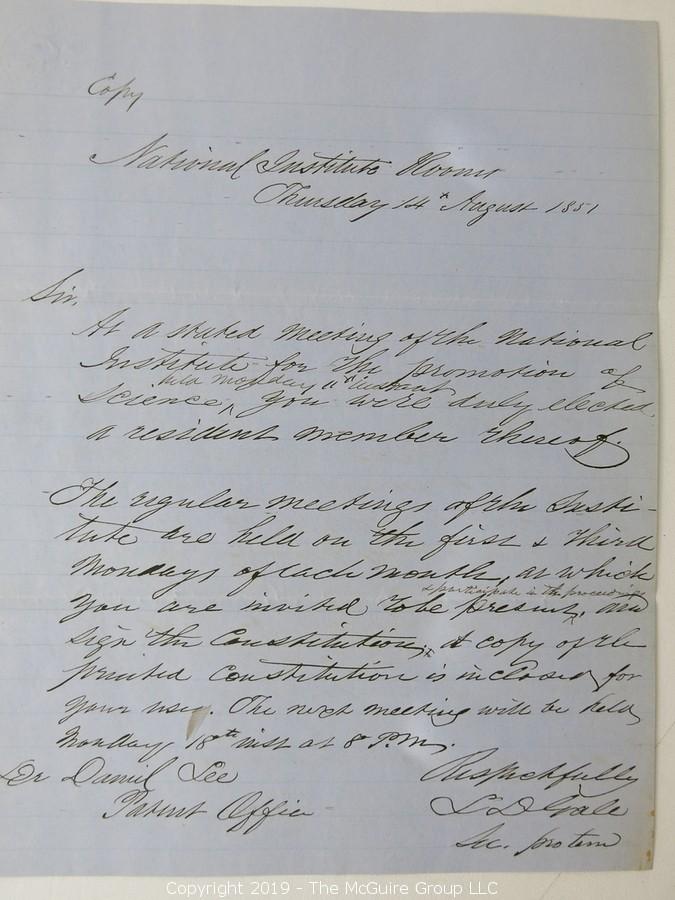 Copy
National Institute Rooms
Thursday 14th August 1851
Sir,
At a stated meeting of the National
Institute for the promotion of
held Monday 11th instant
Science, ^ you were duly elected
a resident member thereof.
The regular meetings of the Insti-
tute are held on the first & third
Mondays of each month, at which
& participate in the proceedings
you are invited to be present, ^ and
sign the Constitution, A copy of the
printed constitution is inclosed for
your use. The next meeting will be held
Monday 18th inst at 8 P.M.
Dr Daniel Lee
Patent Office
Respectfully
L D Gale
Sec. pro tem
Copyright 2019 - The McGuire Group LLC